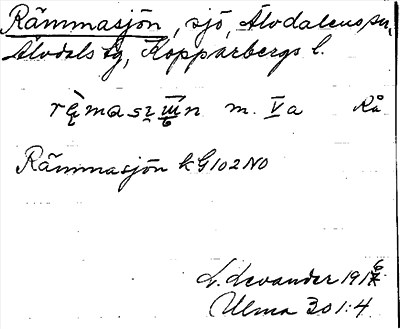 Rämmasjön, sjö, Älvdalens sn,
Älvdals tg, Kopparbergs l.
m. Va Rå
Rämmasjön kG102NO
L. Levander 1916
Ulma 301:4.